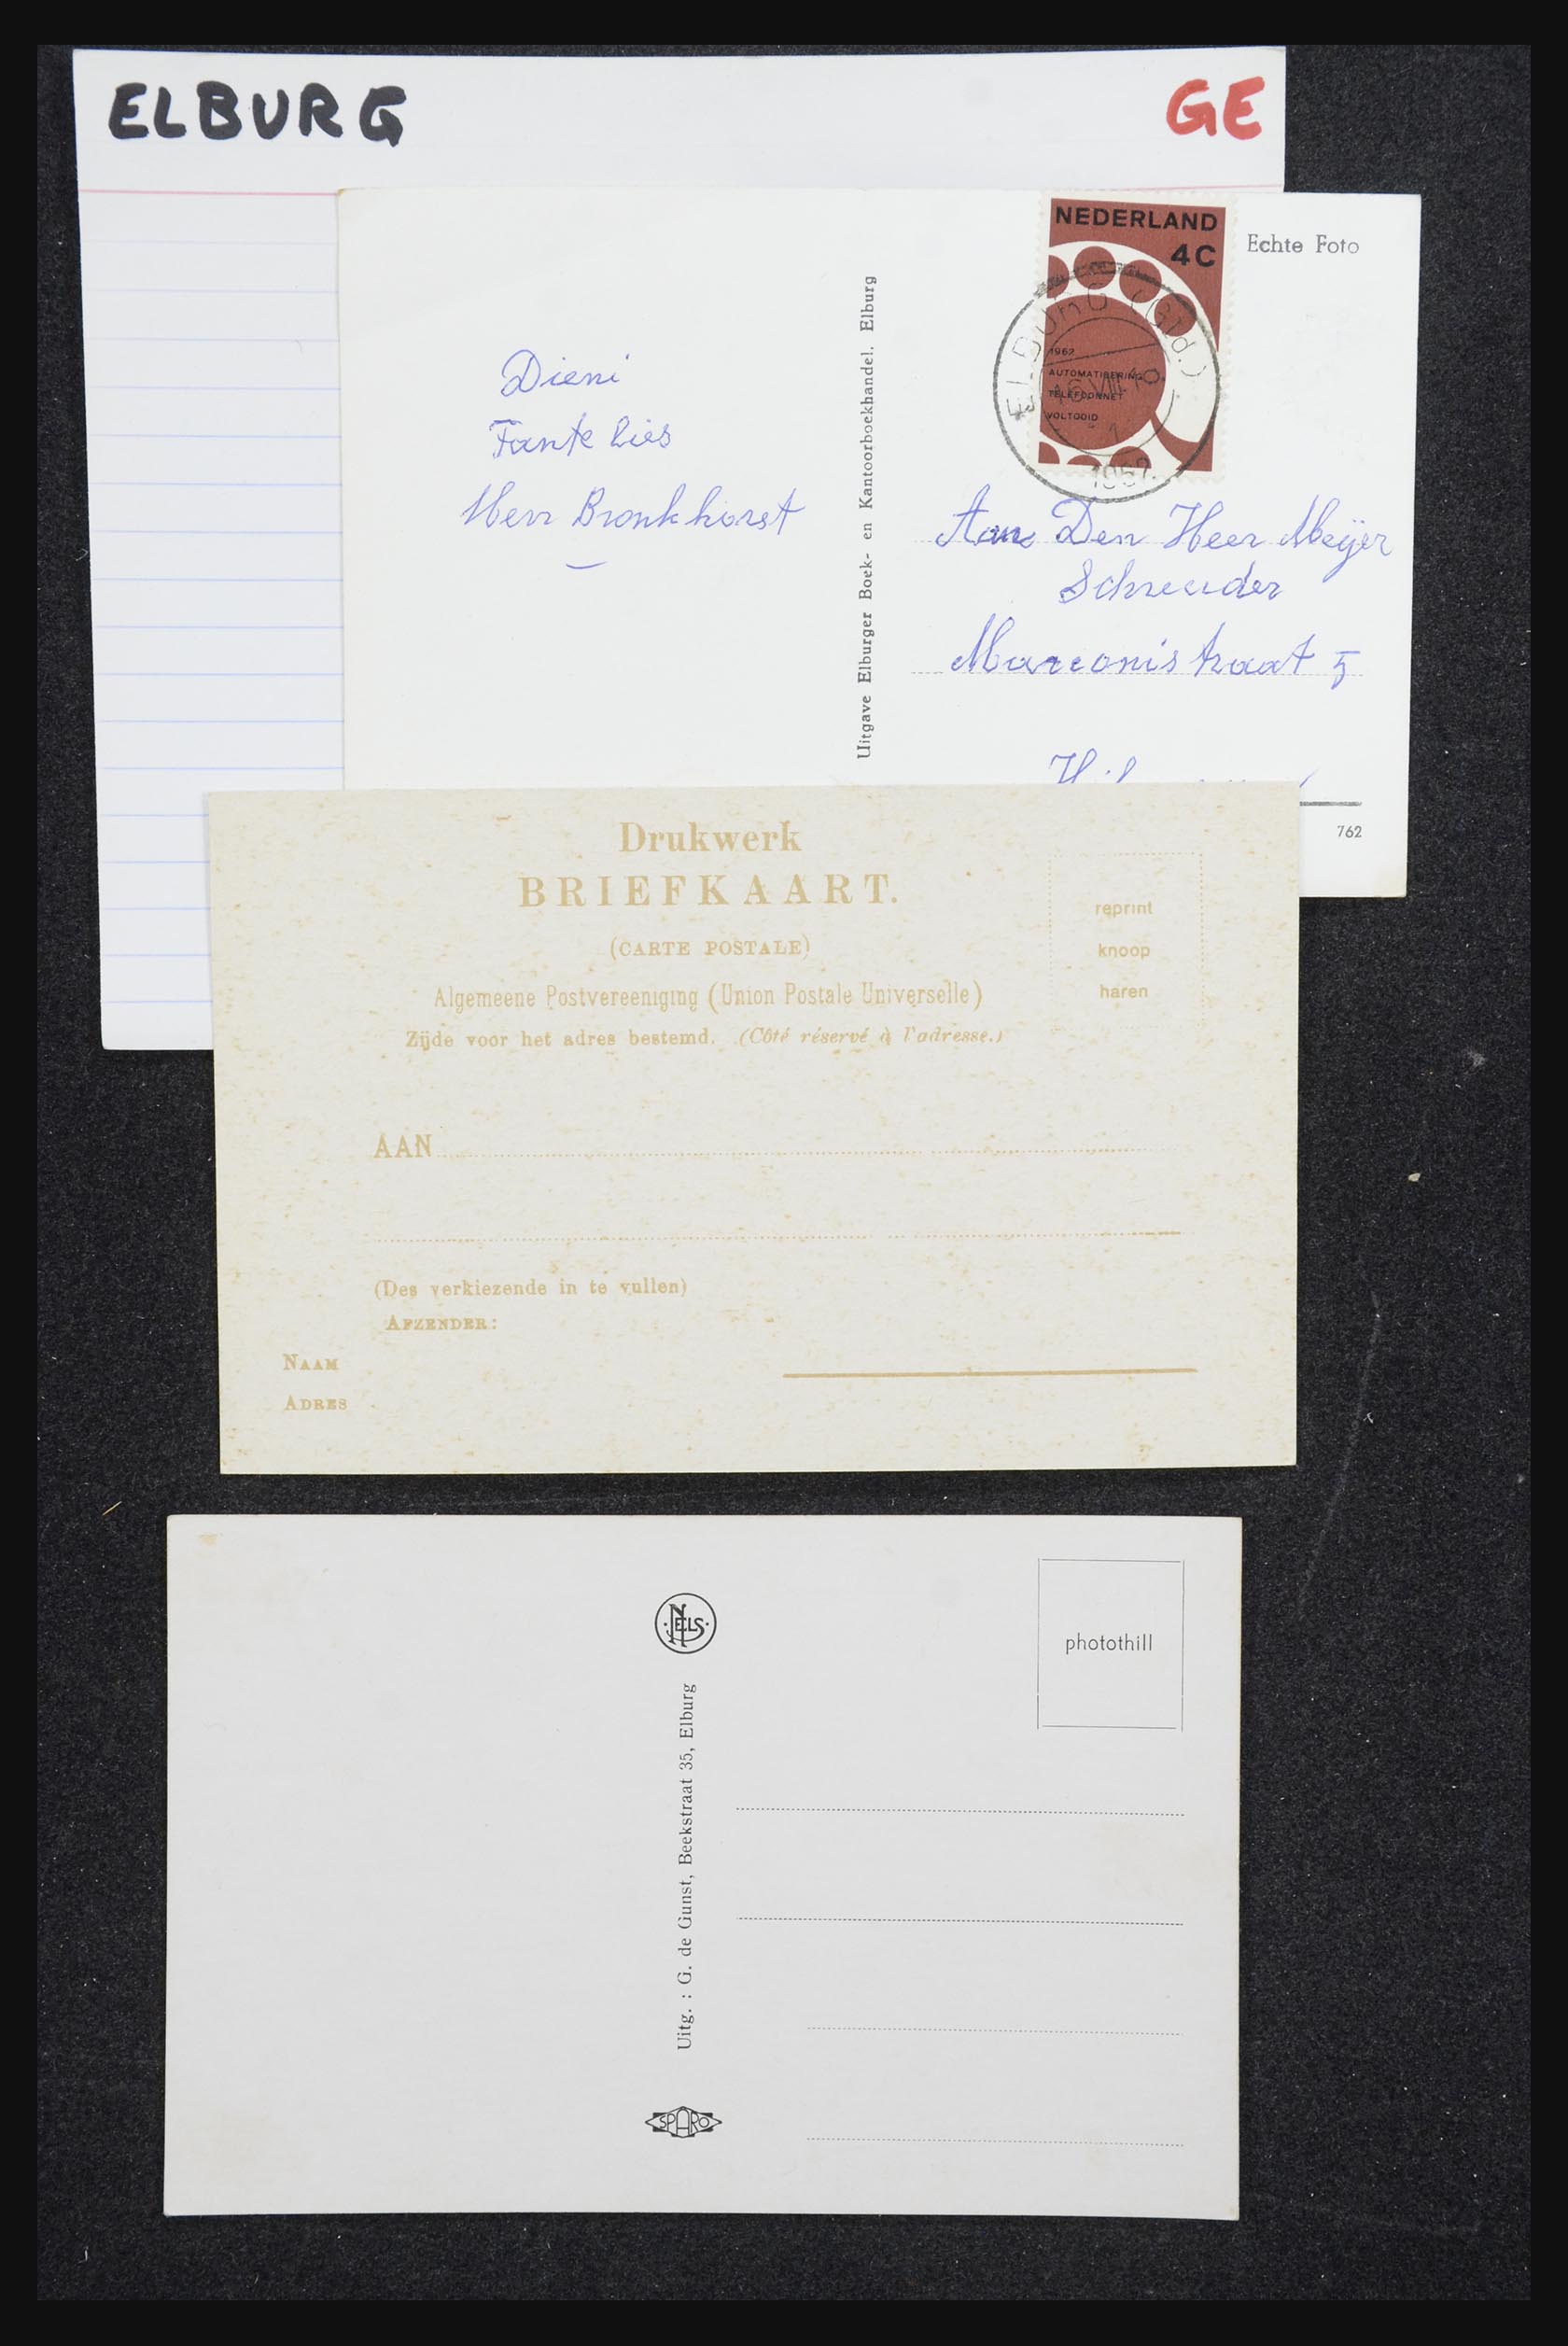 ELBURG
GE
NEDERLAND
4C
Echte Foto
1962
AUTOMATISERING
TELEFOONNET
VOLTOOID
ELBURG (Gld.)
16 VIII
1962
Dieni
Tante Lies
Herr Bronkhorst
Uitgave Elburger Boek- en Kantoorboekhandel. Elburg
Aan Den Heer Meijer
Schreuder
Marconistraat 5
762
Drukwerk
BRIEFKAART.
(CARTE POSTALE)
Algemeene Postvereeniging (Union Postale Universelle)
Zijde voor het adres bestemd. (Côté réservé à l'adresse.)
reprint
knoop
haren
AAN
(Des verkiezende in te vullen)
AFZENDER:
NAAM
ADRES
NELS
photothill
Uitg. : G. de Gunst, Beekstraat 35, Elburg
SPARO